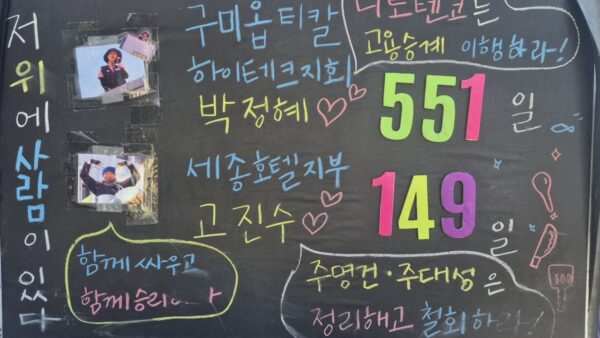 저 위에 사람이 있다
구미옵티칼
하이테크지회
박정혜
551일
니토덴코는
고용승계 이행하라!
세종호텔지부
고진수
149일
함께 싸우고
함께 승리
주명건·주대성은
정리해고 철회하라!